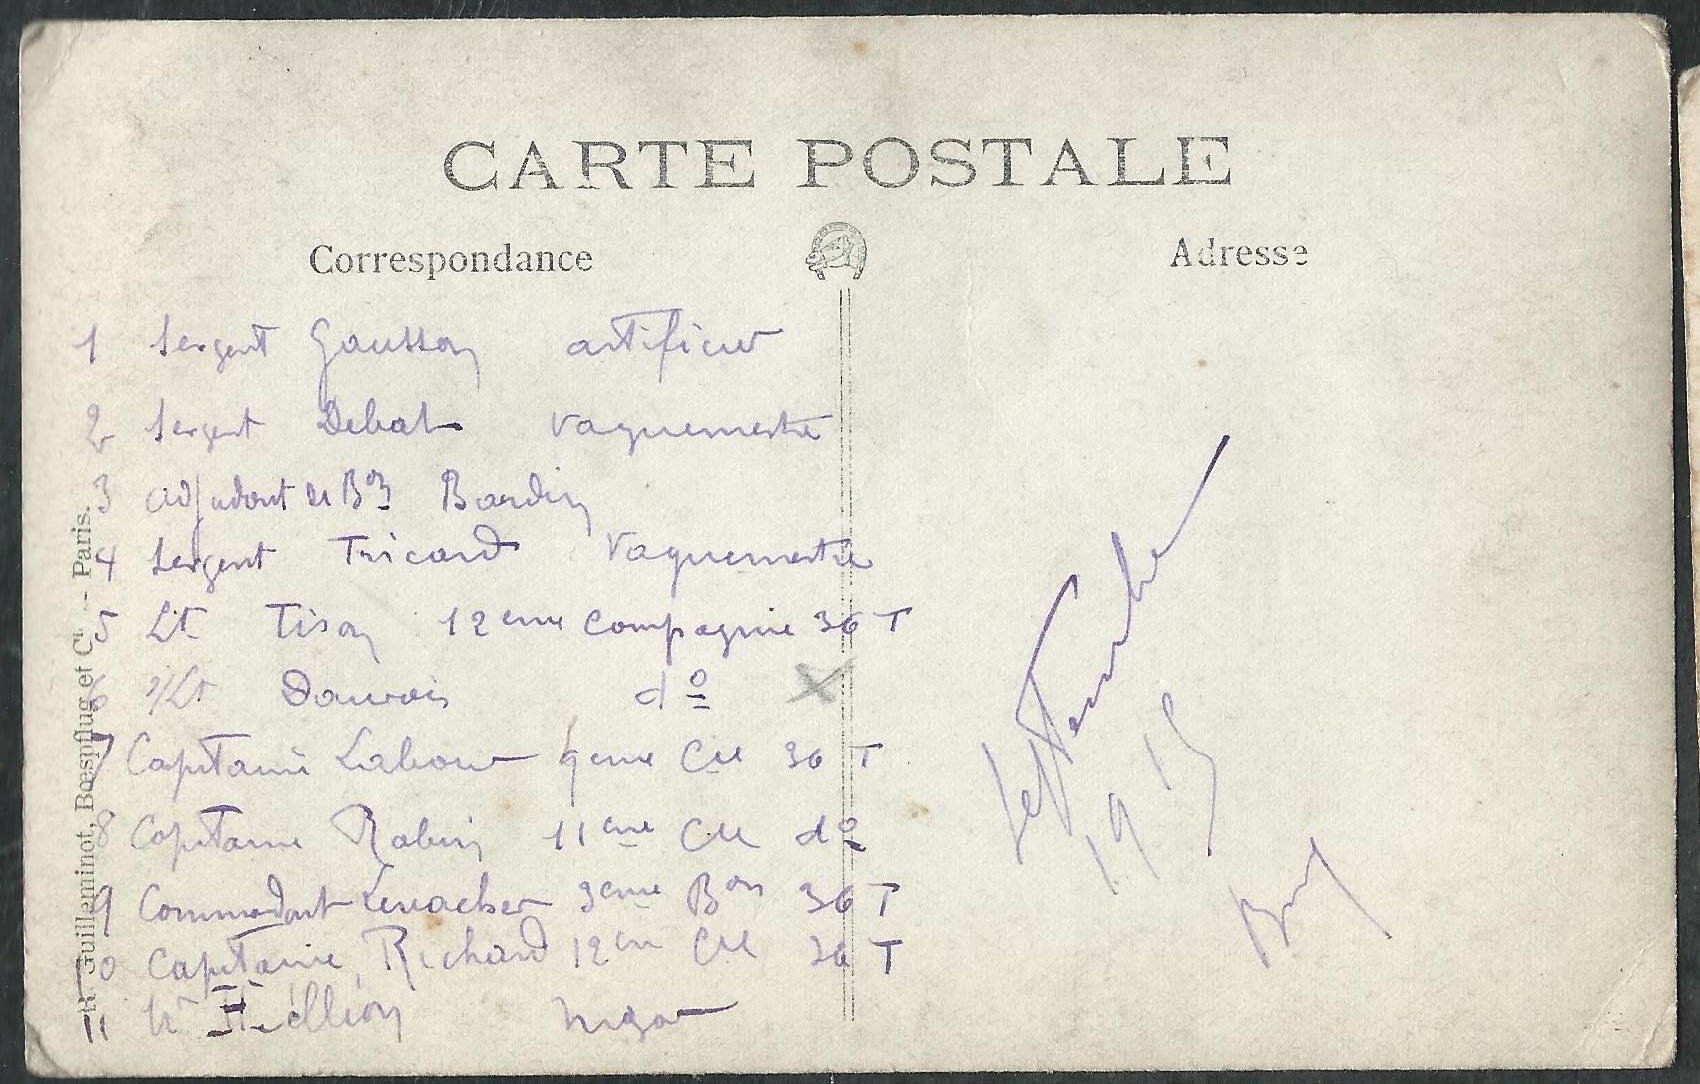 CARTE POSTALE
Correspondance
Adresse
1 Sergent Gausson artificier
2 Sergent Debat vaguemestre
3 adjudant de Bon Bardin
4 Sergent Tricard Vaguemestre
5 Lt Tison 12eme Compagnie 36 T
6 s/Lt Dauvois do
7 Capitaine Labour 9eme Cie 36 T
8 Capitaine Rabin 11eme Cie do
9 Commandant 3eme Bon 36 T
10 Capitaine Richard 12eme Cie 36 T
11
Septembre
1915
R. Guilleminot, Bœspflug et Cie – Paris.